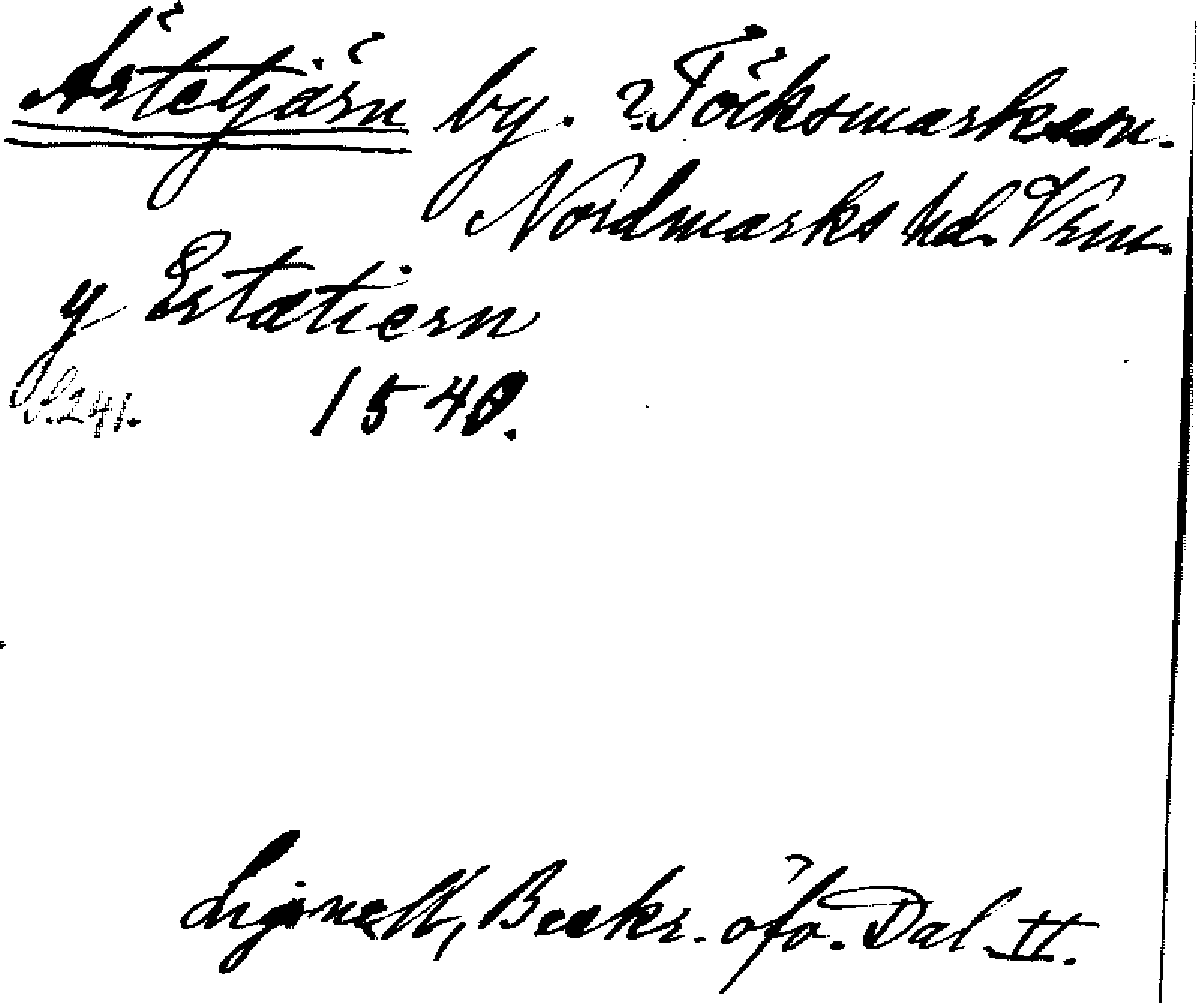 Ärtetjärn by. ? Töcksmarks sn.
Nordmarks hd. Vrm.
y Ertetiern
S. 241. 1540.
Lignell, Beskr. öfv. Dal II.